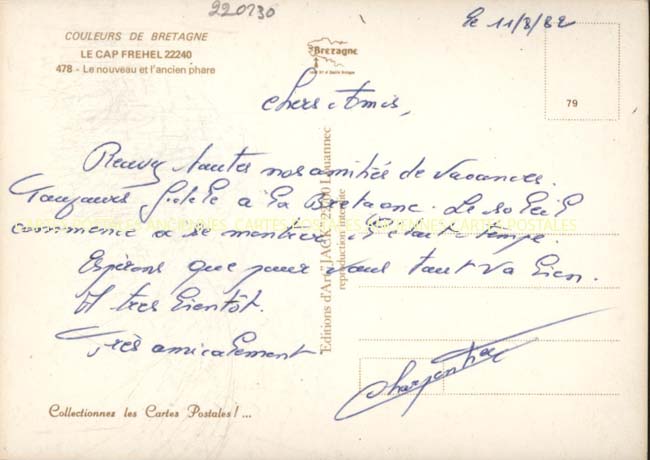 220730
le 11/8/82
COULEURS DE BRETAGNE
LE CAP FREHEL 22240
478 - Le nouveau et l'ancien phare
Bretagne
79
Chers Amis,
Recevez toutes nos amitiés de vacances.
Toujours fidèle à la Bretagne. Le soleil
commence a se montrer, il était temps.
Espérons que pour vous tout va bien.
A très bientôt.
Très amicalement
Charpentier
CARTES POSTALES ANCIENNES CARTES POSTALES ANCIENNES CARTES POSTALES
Editions d'Art "JACK" Louannec
reproduction interdite
Collectionnez les Cartes Postales ! ...